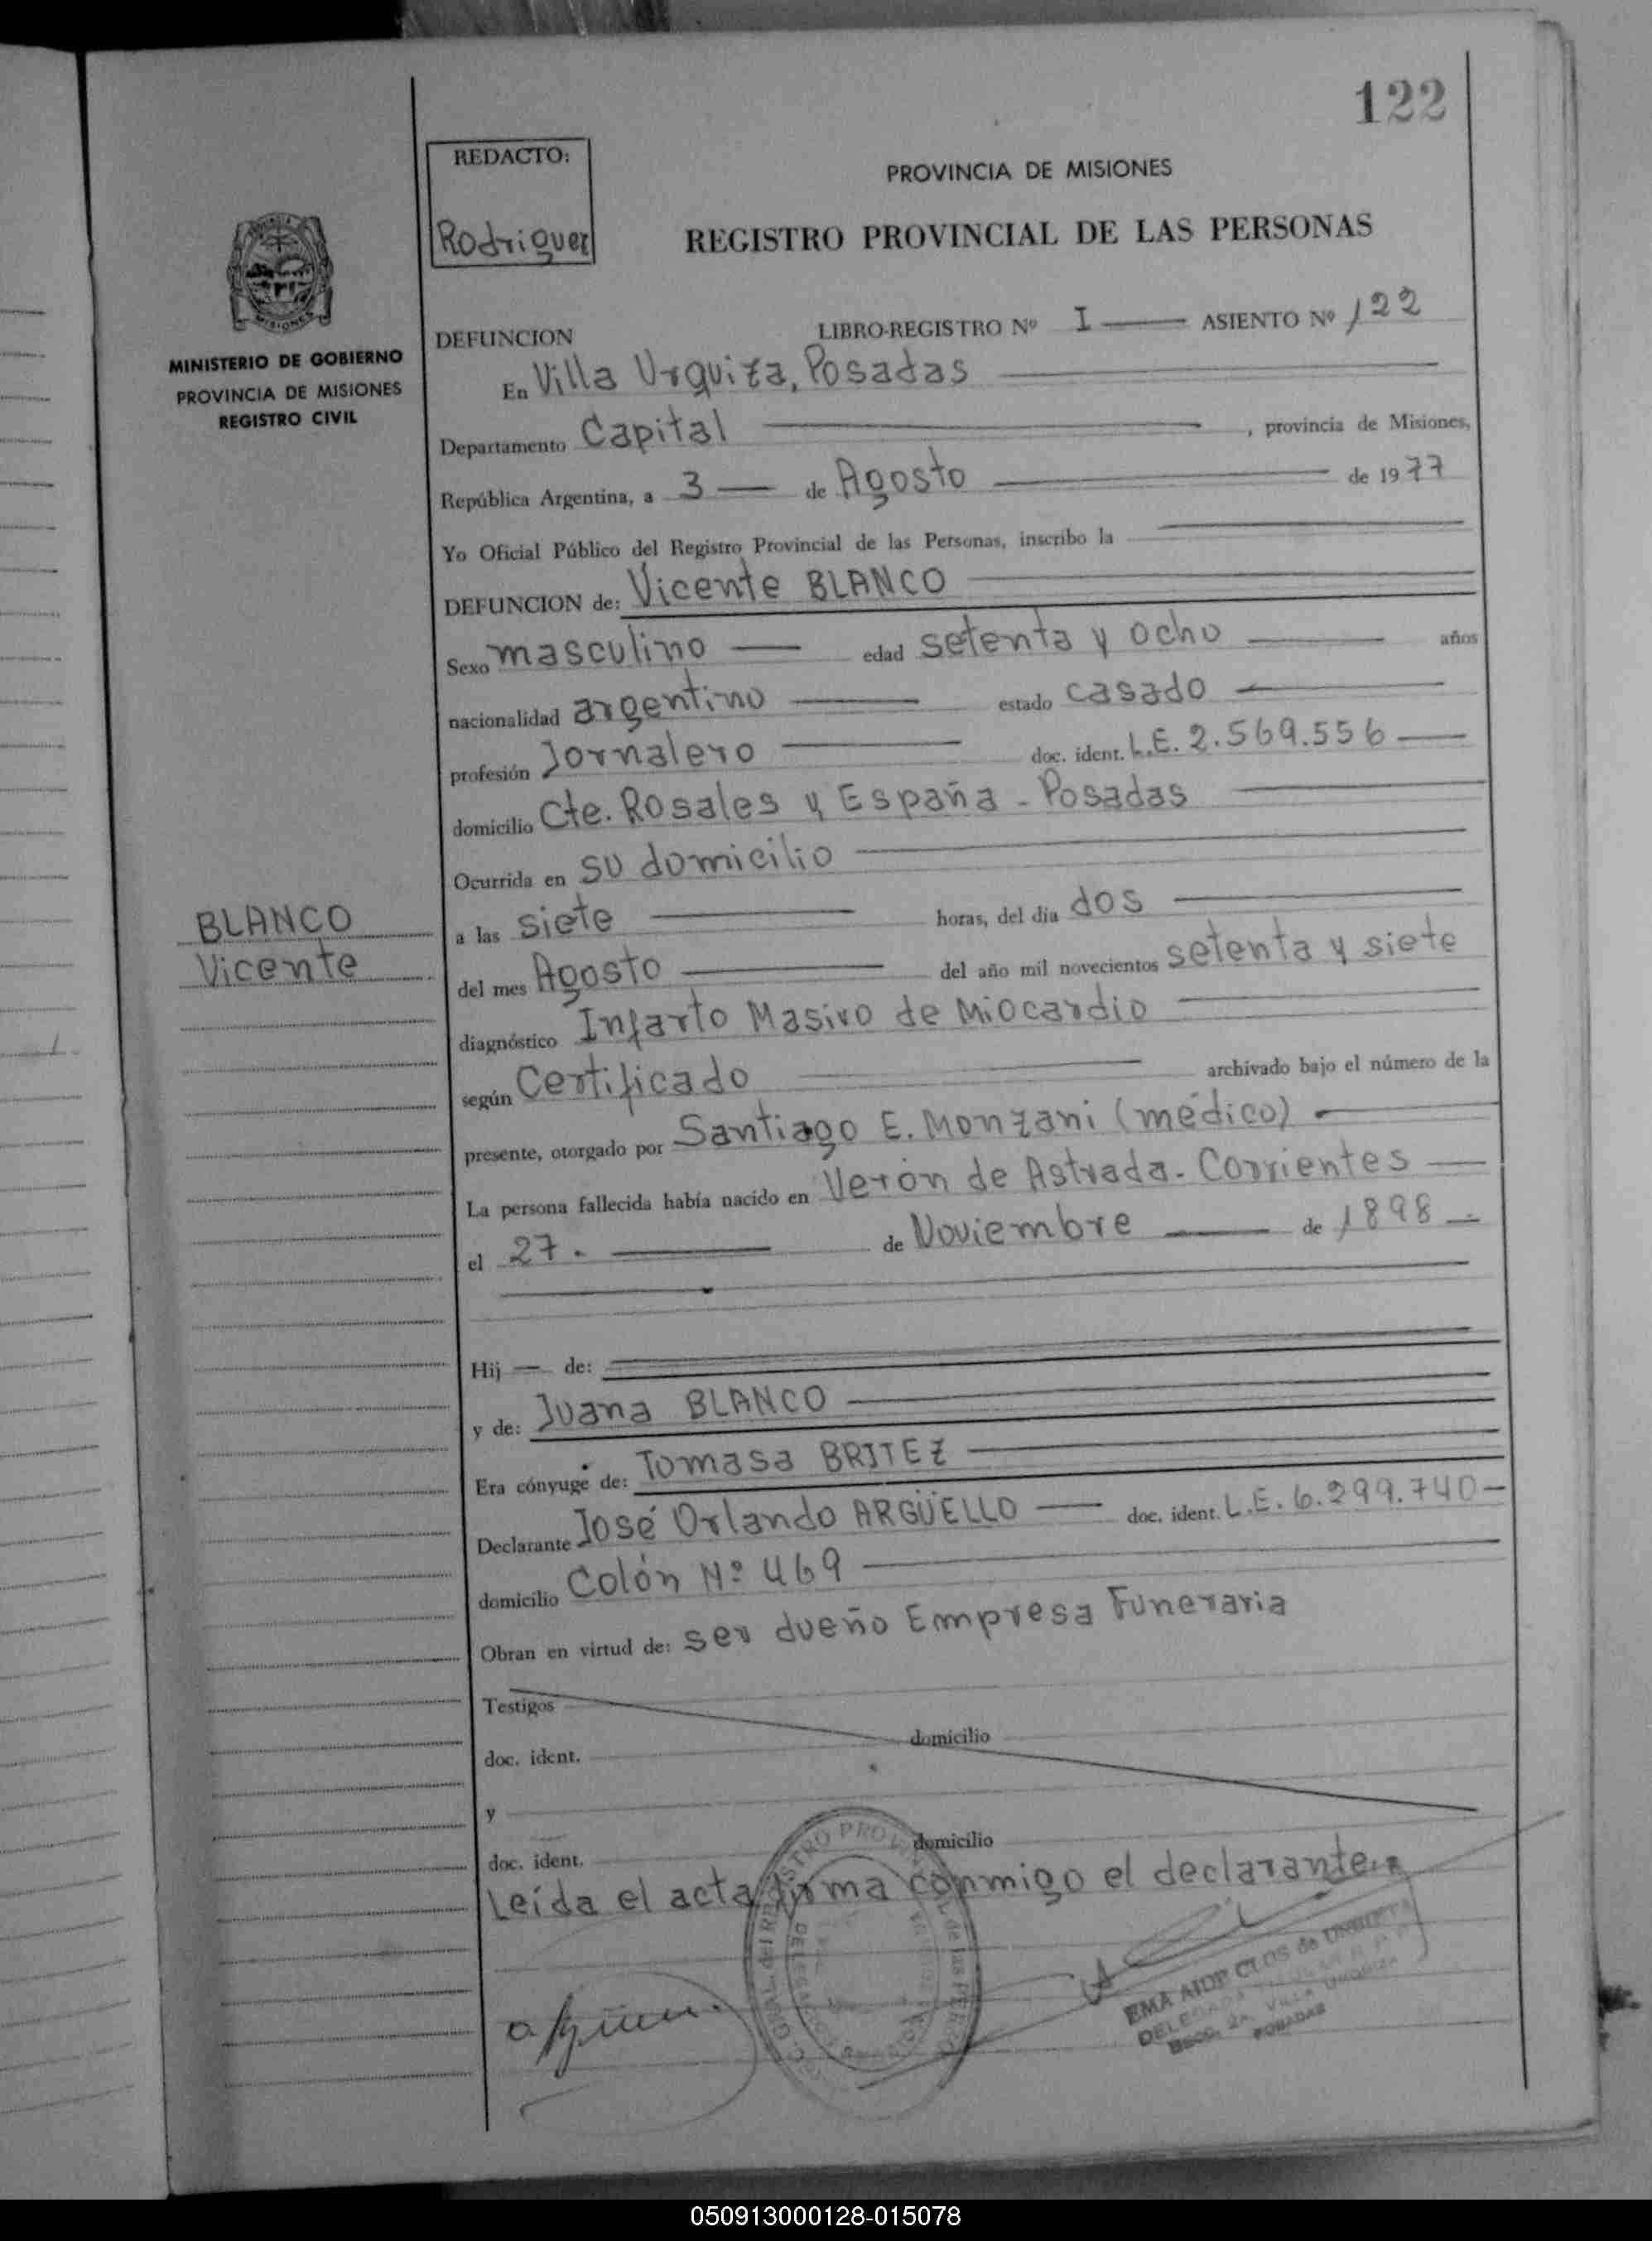 122
REDACTO:
Rodriguez
PROVINCIA DE MISIONES
REGISTRO PROVINCIAL DE LAS PERSONAS
MISIONES
MINISTERIO DE GOBIERNO
PROVINCIA DE MISIONES
REGISTRO CIVIL
DEFUNCION LIBRO-REGISTRO Nº I ASIENTO Nº 122
En Villa Urquiza, Posadas
Departamento Capital , provincia de Misiones,
República Argentina, a 3 de Agosto de 1977
Yo Oficial Público del Registro Provincial de las Personas, inscribo la
DEFUNCION de: Vicente BLANCO
Sexo masculino edad setenta y ocho años
nacionalidad argentino estado casado
profesión Jornalero doc. ident. L.E. 2.569.556
domicilio Cte. Rosales y España - Posadas
Ocurrida en su domicilio
BLANCO
Vicente
a las siete horas, del día dos
del mes Agosto del año mil novecientos setenta y siete
diagnóstico Infarto Masivo de Miocardio
según Certificado archivado bajo el número de la
presente, otorgado por Santiago E. Monzani (médico)
La persona fallecida había nacido en Verón de Astrada - Corrientes
el 27. de Noviembre de 1898
Hij de:
y de: Juana BLANCO
Era cónyuge de: Tomasa BRITEZ
Declarante José Orlando ARGÜELLO doc. ident. L.E. 6.299.740
domicilio Colón Nº 469
Obran en virtud de: ser dueño Empresa Funeraria
Testigos
domicilio
doc. ident.
y
domicilio
doc. ident.
Leída el acta firma conmigo el declarante
EMA AIDE CLOS de URRUTIA
DELEGADA TITULAR
SECC. 2ª VILLA URQUIZA
POSADAS
050913000128-015078